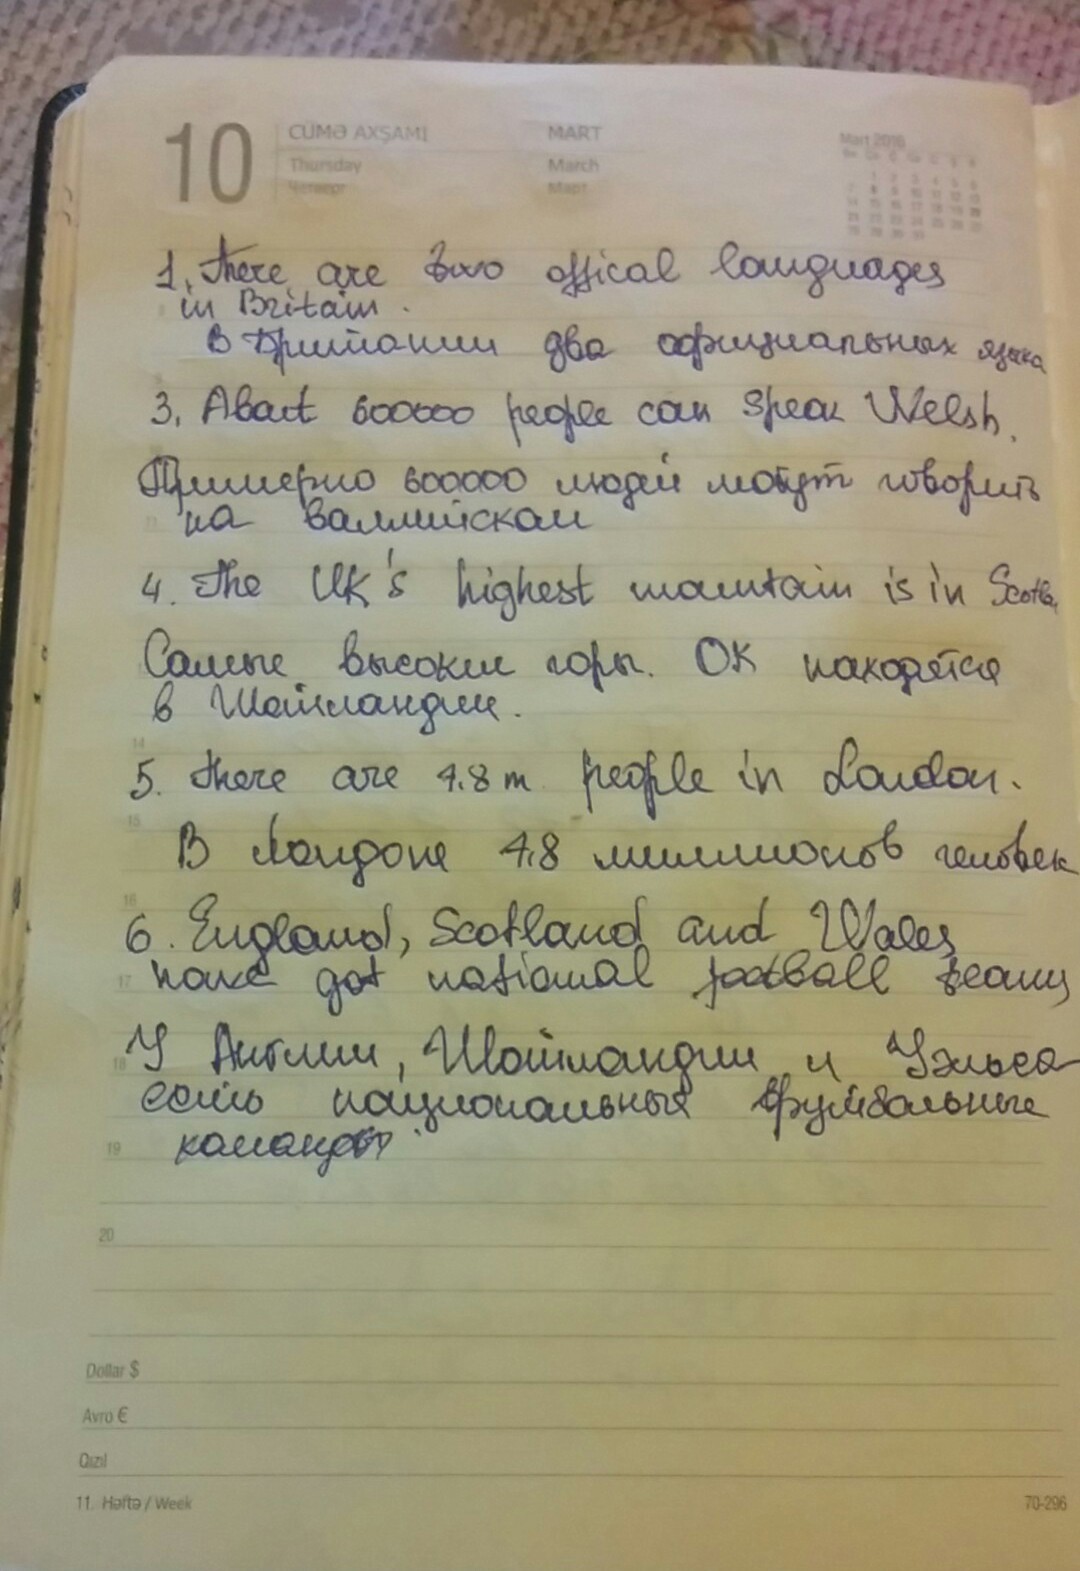 10
CÜMƏ AXŞAMI MART Mart 2016
Thursday March
Четверг Март
1. There are two offical languages
in Britain.
В Британии два официальных языка
3, About 600000 people can speak Welsh.
Примерно 600000 людей могут говорить
на валлийском
4. The UK's highest mountain is in Scotla
Самые высокие горы. ОК находятся
в Шотландии.
14
5. There are 4.8 m people in London.
15
В Лондоне 4,8 миллионов человек
16
6. England, Scotland and Wales
17 have got national football teams
18 У Англии, Шотландии и Уэльса
есть национальных футбольные
19 команды
20
Dollar $
Avro €
Qızıl
11. Həftə / Week 70-296